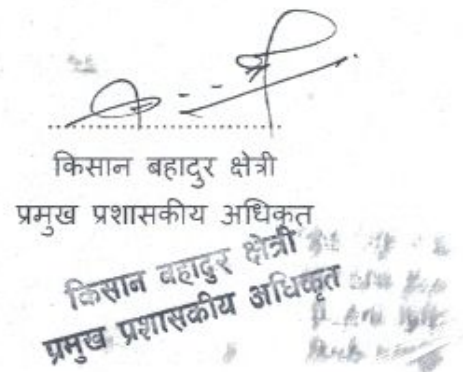 किसान बहादुर क्षेत्री
प्रमुख प्रशासकीय अधिकृत
किसान बहादुर क्षेत्री
प्रमुख प्रशासकीय अधिकृत